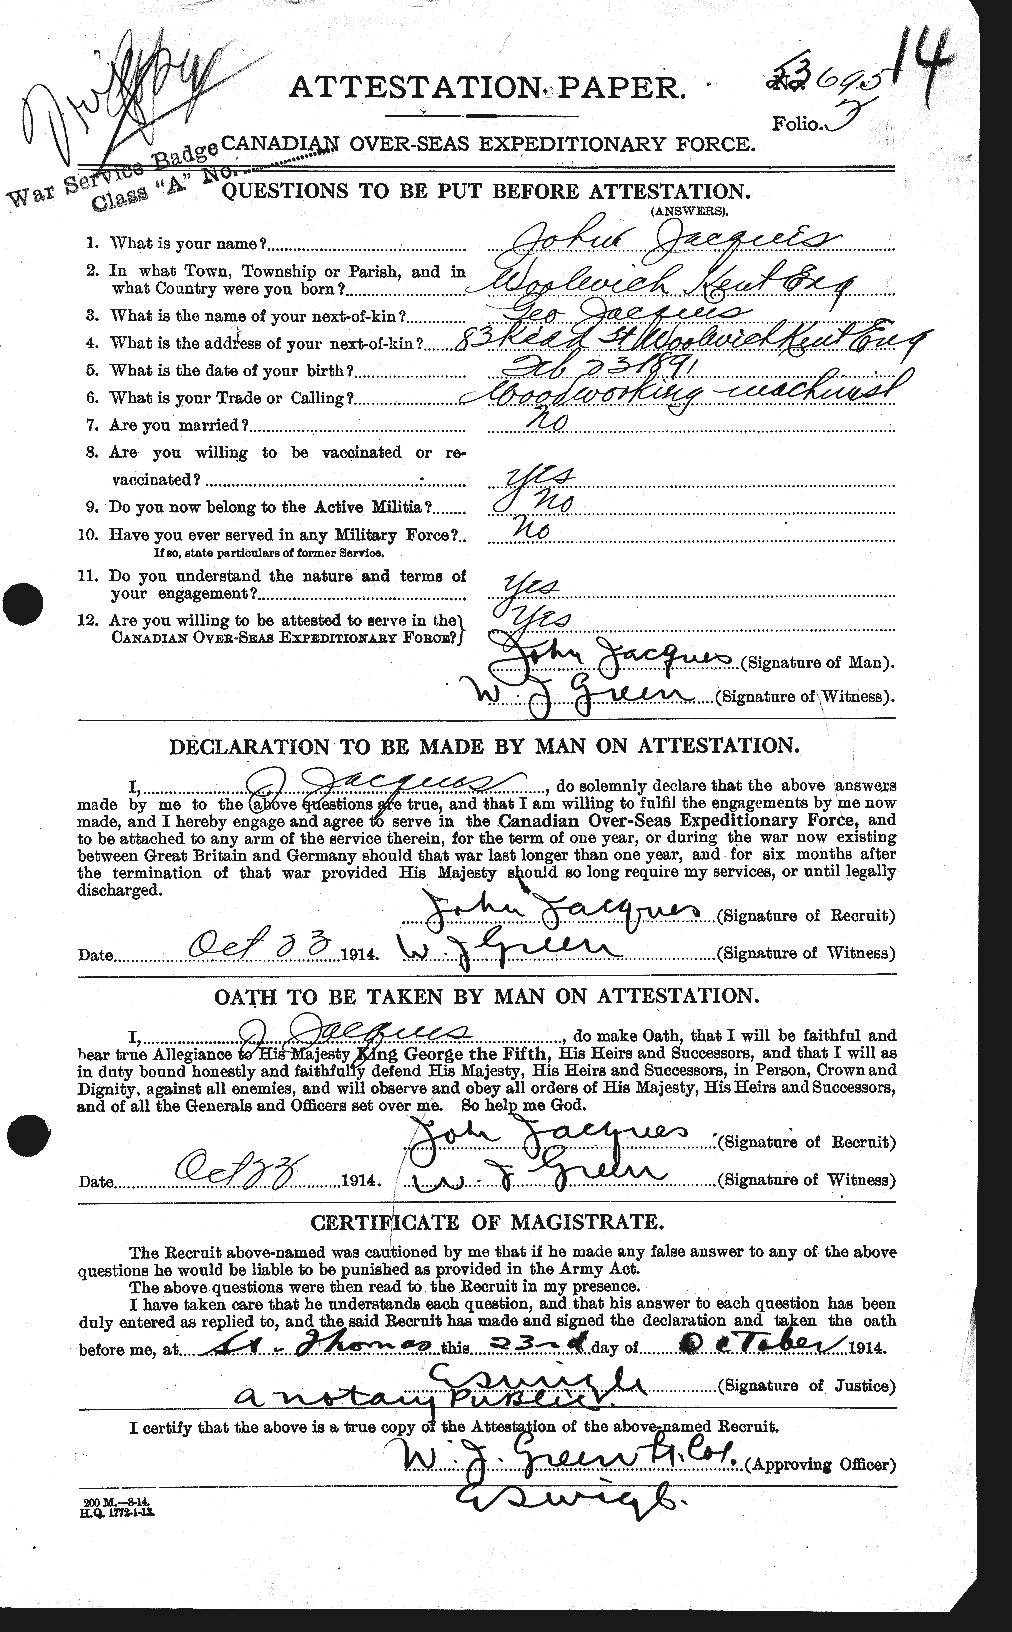 14
ATTESTATION PAPER.
No. 53695
Folio. 2
CANADIAN OVER-SEAS EXPEDITIONARY FORCE.
War Service Badge
Class "A" No.
QUESTIONS TO BE PUT BEFORE ATTESTATION.
(ANSWERS).
1. What is your name? John Jacques
2. In what Town, Township or Parish, and in
what Country were you born? Woolwich Kent Eng
3. What is the name of your next-of-kin? Geo Jacques
4. What is the address of your next-of-kin? 83 St Woolwich Kent Eng
5. What is the date of your birth? Feb 23 1891
6. What is your Trade or Calling? Woodworking machinist
7. Are you married? No
8. Are you willing to be vaccinated or re-
vaccinated? yes
9. Do you now belong to the Active Militia? No
10. Have you ever served in any Military Force? No
If so, state particulars of former Service.
11. Do you understand the nature and terms of
your engagement? yes
12. Are you willing to be attested to serve in the
CANADIAN OVER-SEAS EXPEDITIONARY FORCE? Yes
John Jacques (Signature of Man).
W. J Green (Signature of Witness).
DECLARATION TO BE MADE BY MAN ON ATTESTATION.
I, J Jacques, do solemnly declare that the above answers
made by me to the above questions are true, and that I am willing to fulfil the engagements by me now
made, and I hereby engage and agree to serve in the Canadian Over-Seas Expeditionary Force, and
to be attached to any arm of the service therein, for the term of one year, or during the war now existing
between Great Britain and Germany should that war last longer than one year, and for six months after
the termination of that war provided His Majesty should so long require my services, or until legally
discharged.
John Jacques (Signature of Recruit)
Date Oct 23 1914. W. J Green (Signature of Witness)
OATH TO BE TAKEN BY MAN ON ATTESTATION.
I, J Jacques, do make Oath, that I will be faithful and
bear true Allegiance to His Majesty King George the Fifth, His Heirs and Successors, and that I will as
in duty bound honestly and faithfully defend His Majesty, His Heirs and Successors, in Person, Crown and
Dignity, against all enemies, and will observe and obey all orders of His Majesty, His Heirs and Successors,
and of all the Generals and Officers set over me. So help me God.
John Jacques (Signature of Recruit)
Date Oct 23 1914. W. J Green (Signature of Witness)
CERTIFICATE OF MAGISTRATE.
The Recruit above-named was cautioned by me that if he made any false answer to any of the above
questions he would be liable to be punished as provided in the Army Act.
The above questions were then read to the Recruit in my presence.
I have taken care that he understands each question, and that his answer to each question has been
duly entered as replied to, and the said Recruit has made and signed the declaration and taken the oath
before me, at St. Thomas this 23rd day of October 1914.
(Signature of Justice)
a notary Public.
I certify that the above is a true copy of the Attestation of the above-named Recruit.
W. J. Green Lt. Col. (Approving Officer)
200 M.—8-14.
H.Q. 1772-1-13.